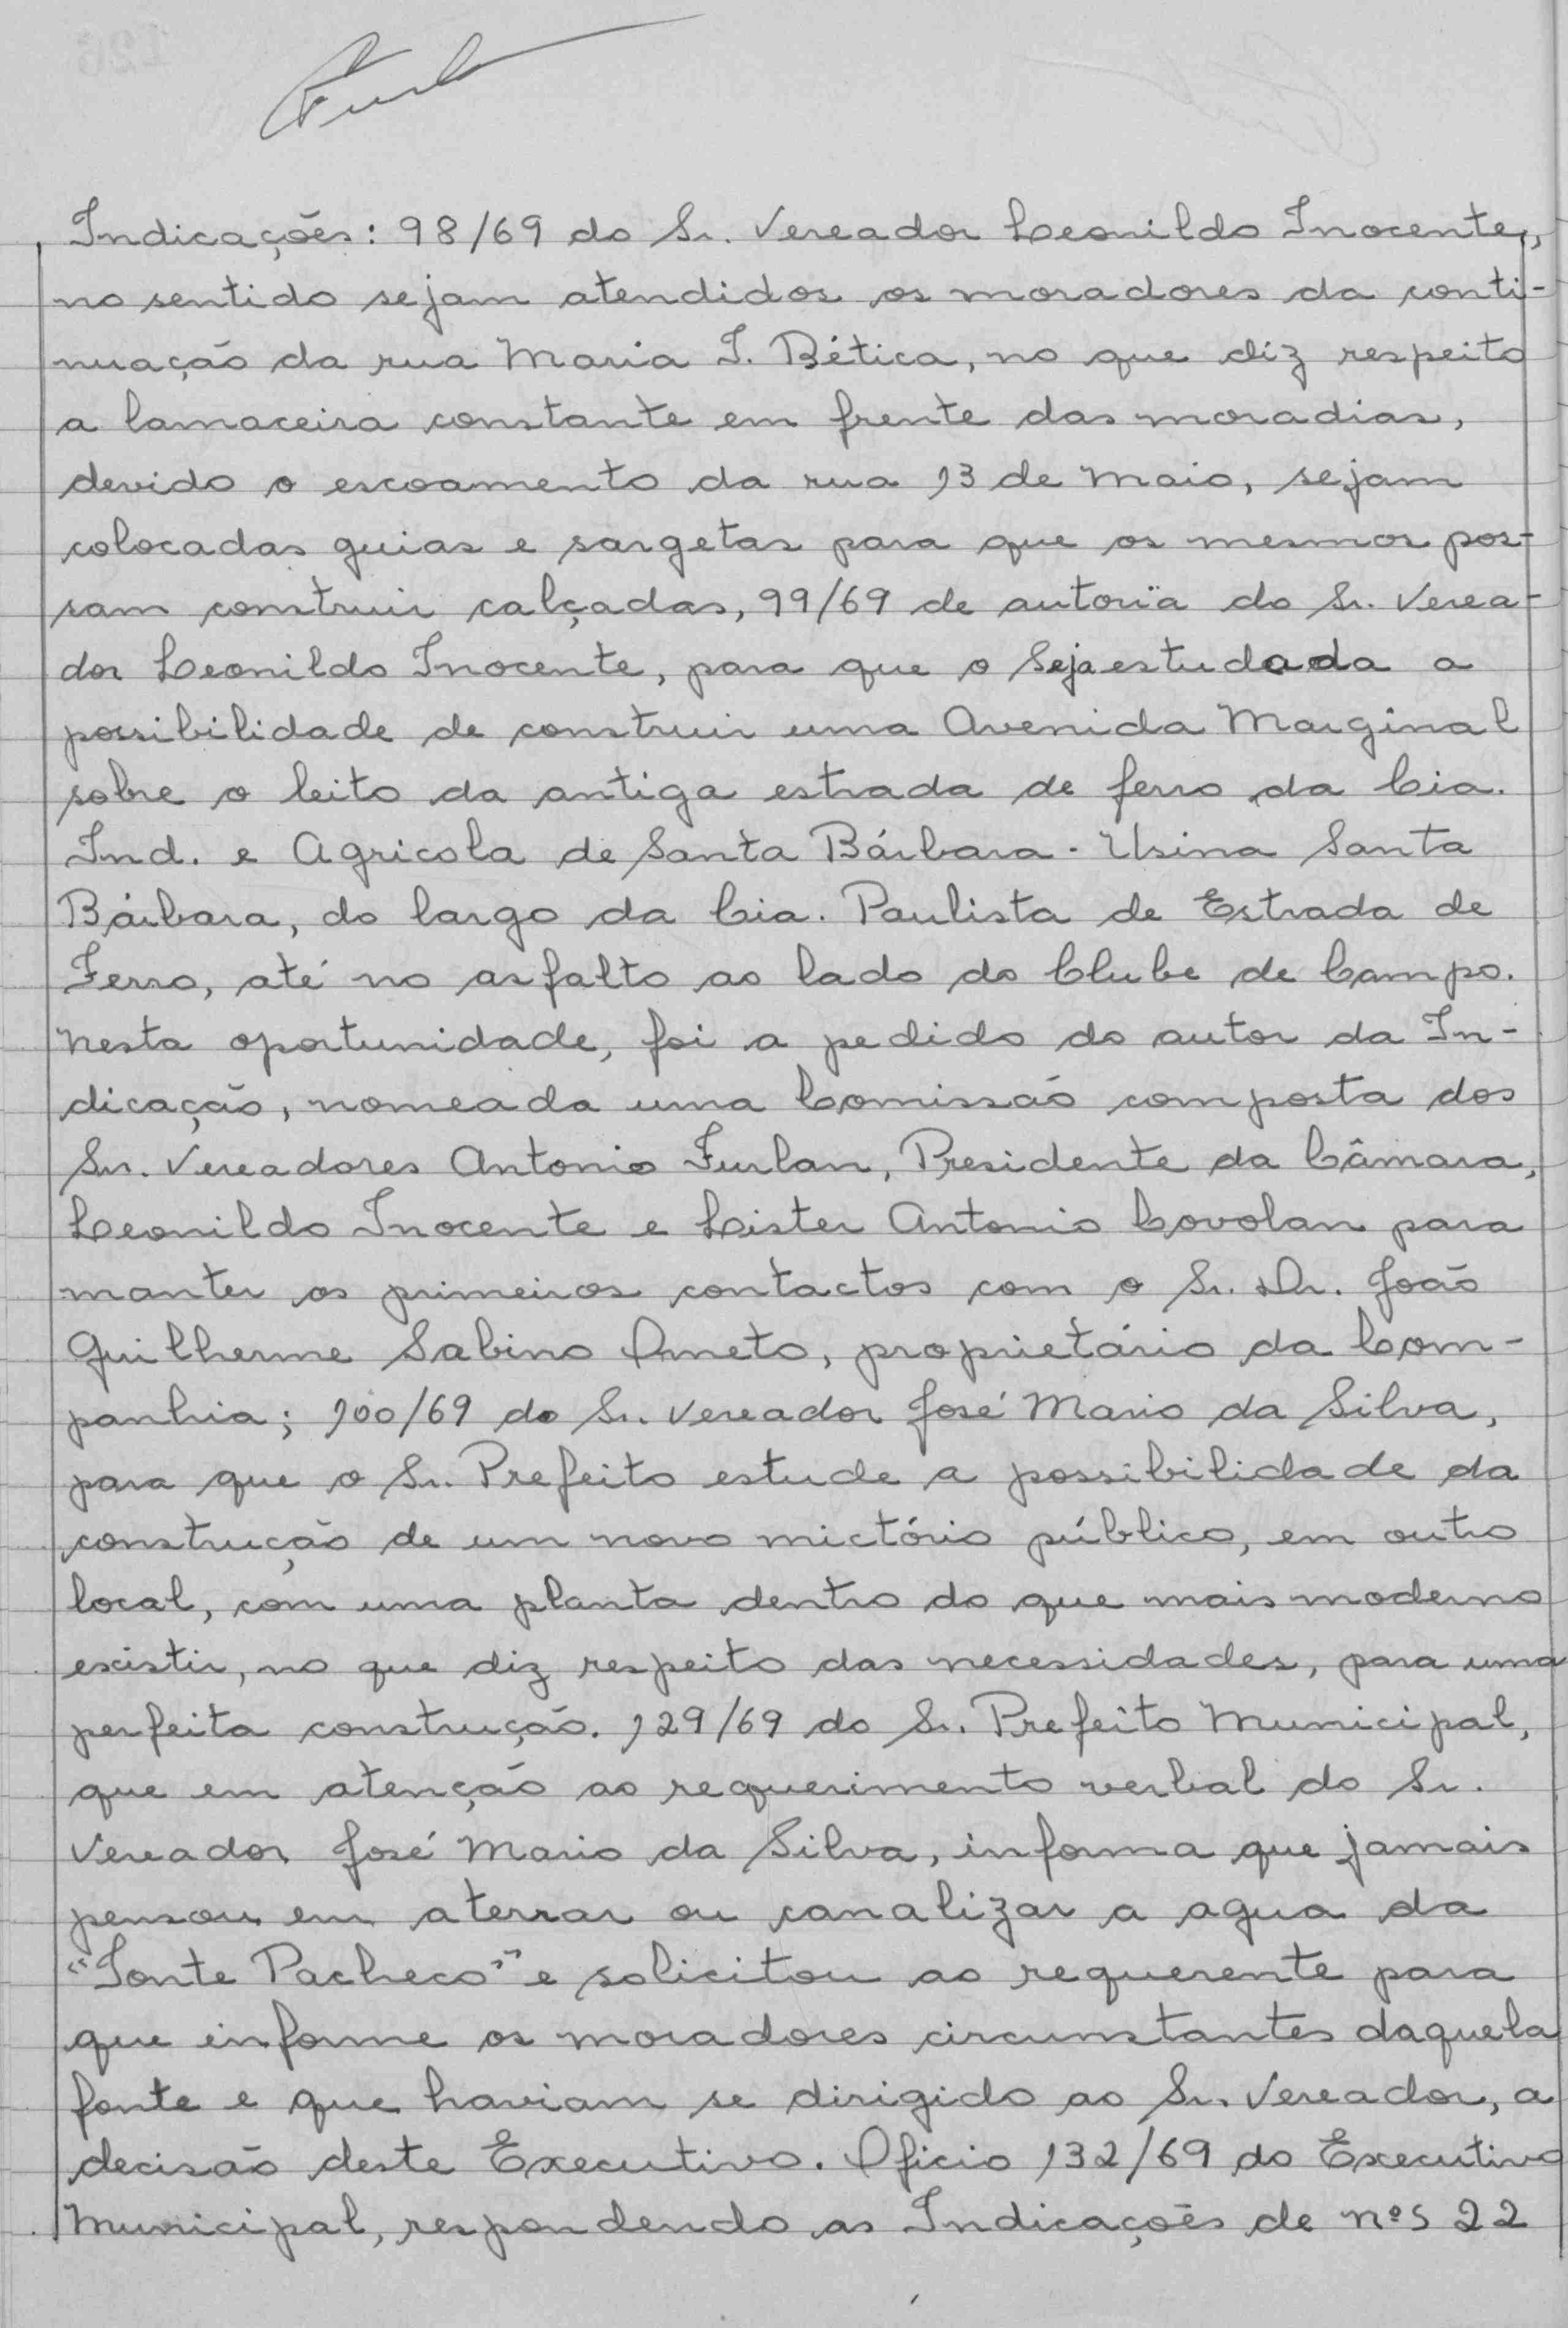 Indicações: 98/69 do Sr. Vereador Leonildo Inocente,
no sentido sejam atendidos os moradores da conti-
nuação da rua Maria I. Bética, no que diz respeito
a lamaceira constante em frente das moradias,
devido o escoamento da rua 13 de Maio, sejam
colocadas guias e sargetas para que os mesmos pos-
sam construir calçadas, 99/69 de autoria do Sr. Verea-
dor Leonildo Inocente, para que o Seja estudada a
possibilidade de construir uma Avenida Marginal
sobre o leito da antiga estrada de ferro da Cia.
Ind. e Agricola de Santa Bárbara - Usina Santa
Bárbara, do largo da Cia. Paulista de Estrada de
Ferro, até no asfalto ao lado do Clube de Campo.
Nesta oportunidade, foi a pedido do autor da In-
dicação, nomeada uma Comissão composta dos
Srs. Vereadores Antonio Furlan, Presidente da Câmara,
Leonildo Inocente e Lister Antonio Covolan para
manter os primeiros contactos com o Sr. Dr. João
Guilherme Sabino Ometo, proprietário da Com-
panhia; 100/69 do Sr. Vereador José Mario da Silva,
para que o Sr. Prefeito estude a possibilidade da
construção de um novo mictório público, em outro
local, com uma planta dentro do que mais moderno
existir, no que diz respeito das necessidades, para uma
perfeita construção. 129/69 do Sr. Prefeito Municipal,
que em atenção ao requerimento verbal do Sr.
Vereador José Mario da Silva, informa que jamais
pensou em aterrar ou canalizar a agua da
"Fonte Pacheco" e solicitou ao requerente para
que informe os moradores circumstantes daquela
fonte e que haviam se dirigido ao Sr. Vereador, a
decisão deste Executivo. Oficio 132/69 do Executivo
Municipal, respondendo as Indicações de nºs 22